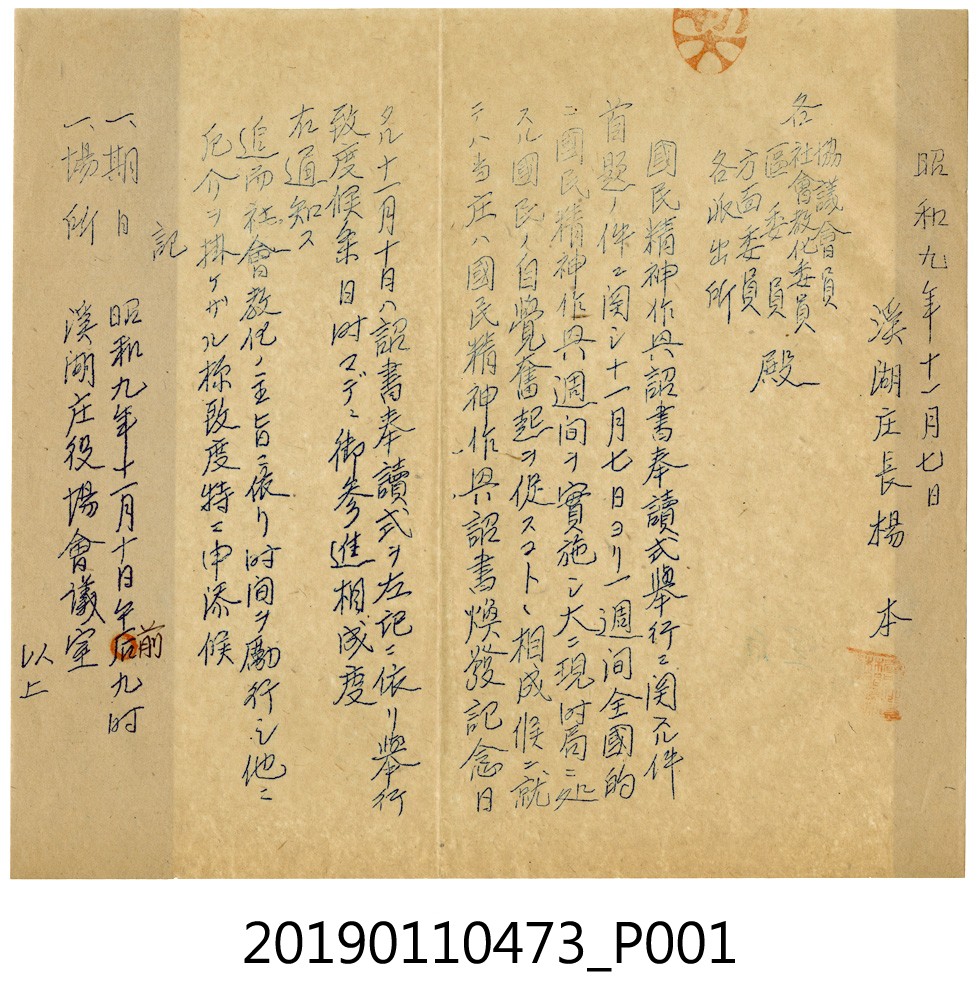 昭和九年十一月七日
溪湖庄長楊 本
協議會員
各社會教化委員
區委員 殿
方面委員
各派出所
國民精神作興詔書奉讀式擧行ニ関スル件
首題ノ件ニ関シ十一月七日ヨリ一週间全國的
ニ國民精神作興週间ヲ實施シ大ニ現时局ニ処
スル國民ノ自覺奮起ヲ促スコトヽ相成候ニ就
テハ当庄ハ國民精神作興詔書煥發記念日
タル十一月十日ハ詔書奉讀式ヲ左記ニ依リ擧行
致度候条日时マデニ御參進相成度
右通知ス
追而社會教化ノ主旨ニ依リ时间ヲ勵行シ他ニ
厄介ヲ掛ケザル様致度特ニ申添候
記
一、期日 昭和九年十一月十日午后前九时
一、場所 溪湖庄役場會議室
以上
20190110473_P001